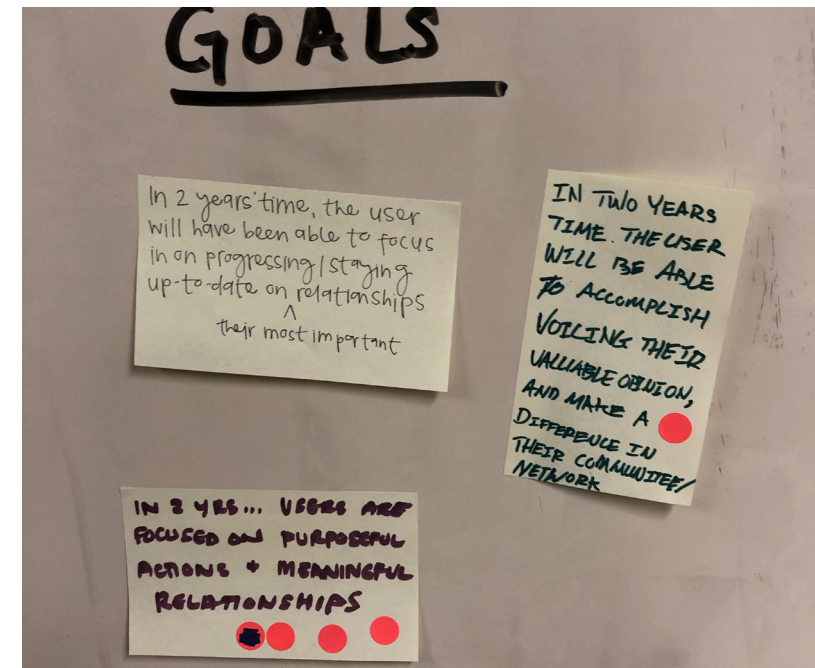 GOALS
In 2 years' time, the user
will have been able to focus
in on progressing/staying
up-to-date on relationships
^
their most important
IN TWO YEARS
TIME. THE USER
WILL BE ABLE
TO ACCOMPLISH
VOICING THEIR
VALUABLE OPINION,
AND MAKE A
DIFFERENCE IN
THEIR COMMUNITEE/
NETWORK
IN 2 YRS... USERS ARE
FOCUSED ON PURPOSEFUL
ACTIONS + MEANINGFUL
RELATIONSHIPS